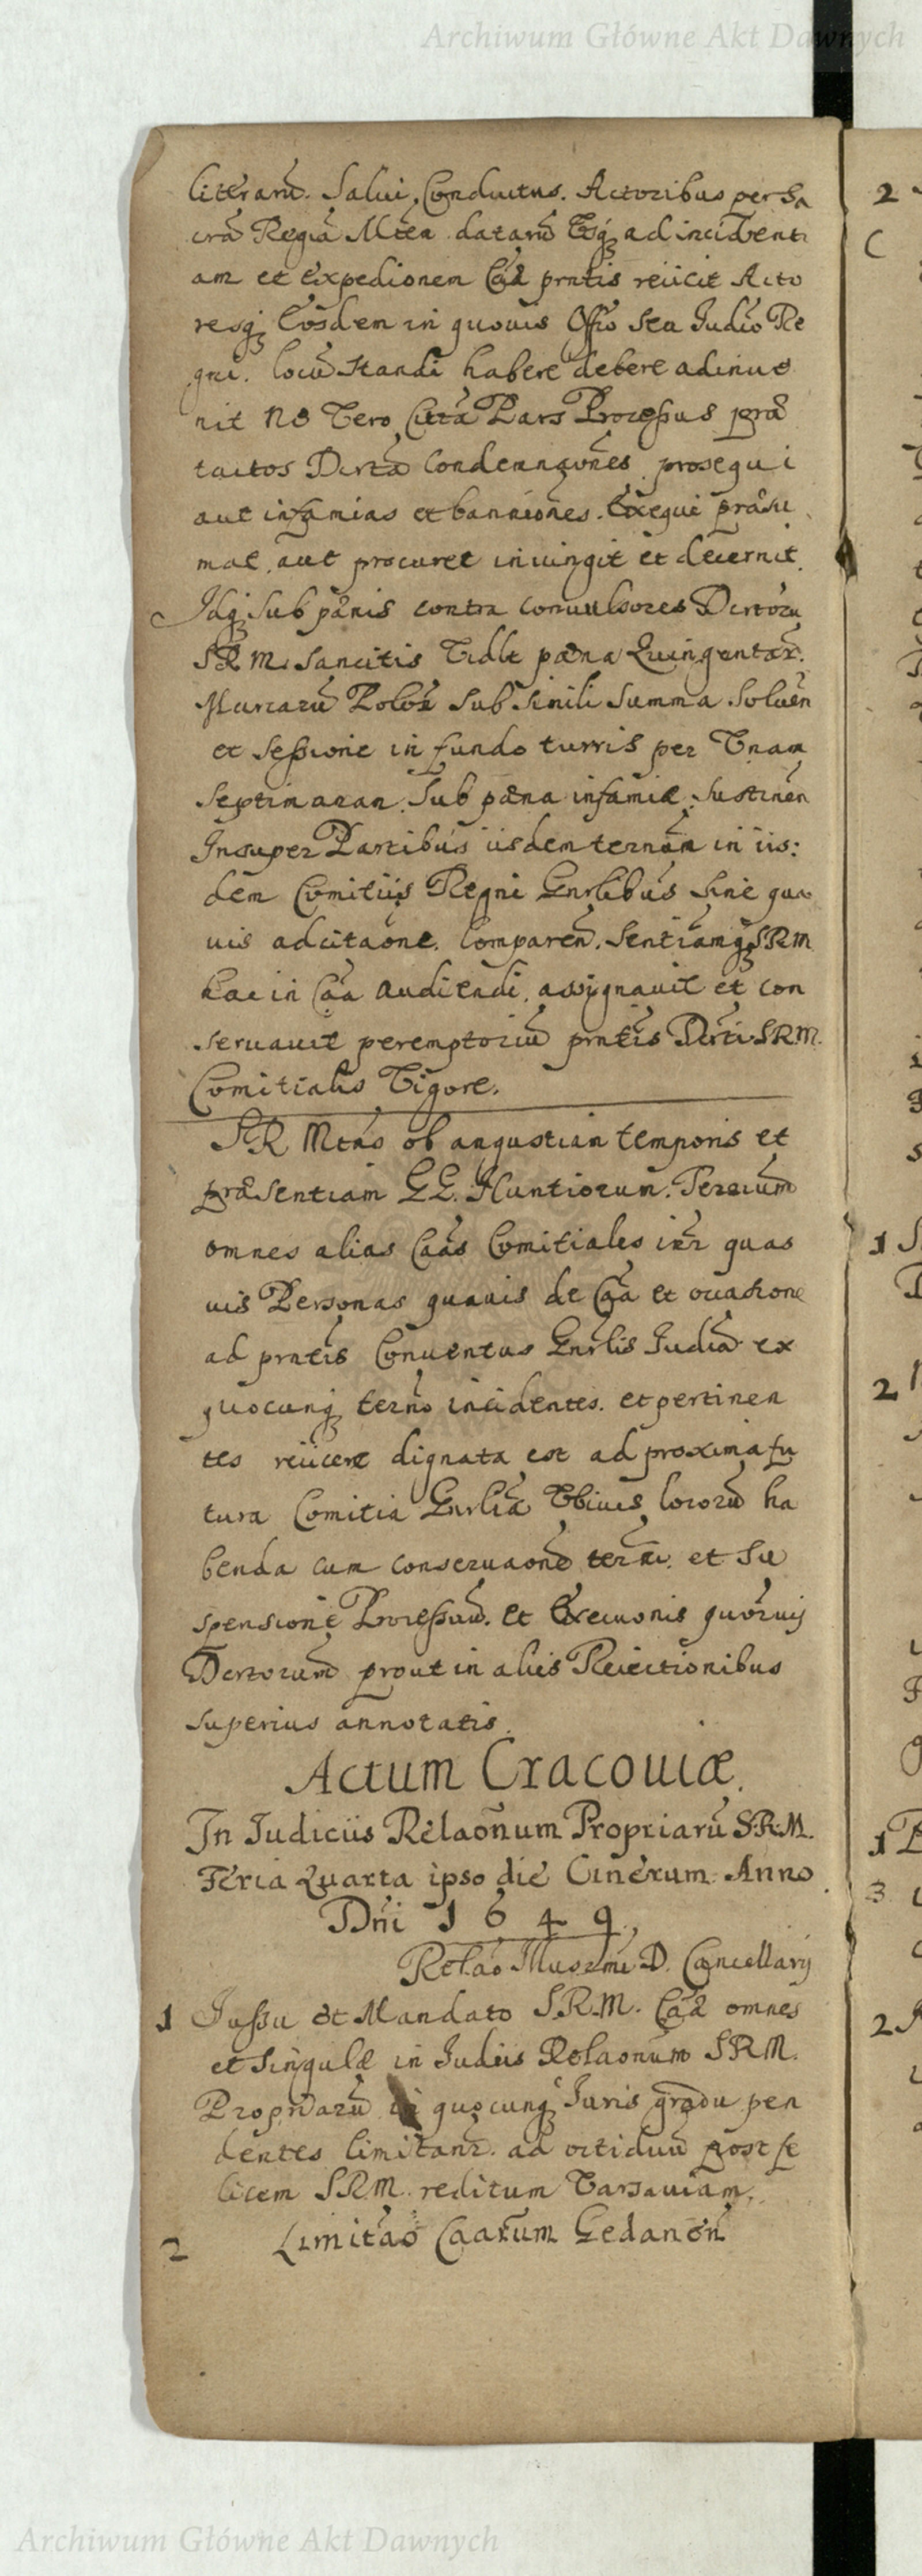 Archiwum Główne Akt Dawnych
literarũ. Salui Conductus. Actoribus per Sa
crã Regiã Mtẽm datarũ Vsq; ad incidenti
am et Expedionem Cãæ pñtis reiicit Acto
resq; Eosdem in quouis Offio seu Judio Re
gni. locũ standi habere debere adinue
nit Ne Vero Citãta Pars Processus præ
tactos Dcrta Condemnaones prosequi
aut infamias et banniones. Exequi præsu
mat. aut procuret iniungit et decernit.
Idq; sub pænis contra conuulsores Dcrtorũ
SRM. Sancitis Vidlt pæna Quingentar.
Marcarũ Polon Sub Simili Summa Soluen
et Sessione in fundo turris per Vnam
Septimanam. Sub pæna infamiæ. Sustinen
Insuper Partibus iisdem termñm in iis:
dem Comitiis Regni Gnrlibus Sine qua
uis adcitaone. Comparen. Sentiamq; SRM
hac in Cãa Audiendi. assignauit et con
seruauit peremptoriũ pñtis Dcrti SRM.
Comitialis Vigore.
SR Mtas ob angustiam temporis et
præsentiam LL. Nuntiorum. Terrarum
omnes alias Cãas Comitiales inr quas
uis Personas quauis de Cãa et occasione
ad pñtis Conuentus Gnrlis Judia ex
quocunq; termo incidentes. et pertinen
tes reiicere dignata est ad proxima fu
tura Comitia Gnrlia Vbiuis locorũ ha
benda cum conseruaone termi. et Su
spensione Processuũ. et Execuonis quoruis
Dcrtorum prout in aliis Reiectionibus
superius annotatis.
Actum Cracouiæ.
In Iudiciis Relaõnum Propriarũ S.R.M.
Feria Quarta ipso die Cinerum. Anno
Dñi 1649.
Relao Illusrmi D. Cancellarij
1 Jussu et Mandato S.R.M. Cãæ omnes
et Singulæ in Judiis Relaonum SRM.
Propriarũ in quocunq; Juris gradu pen
dentes limitantr. ad octiduũ post fe
licem SRM. reditum Varsauiam.
2 Limitao Caarum Gedanen
Archiwum Główne Akt Dawnych